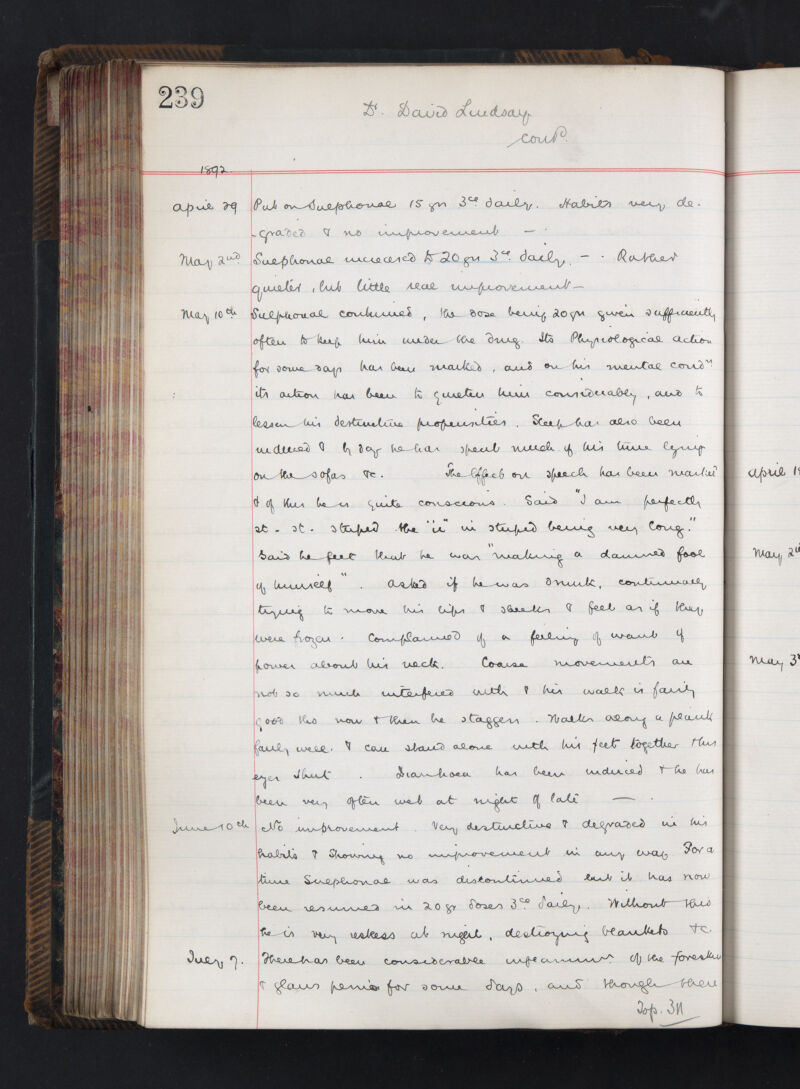 239
Dr. David Lindsay
contd.
1892
April 29 Put on Sulphonal 15 grs 3ce daily. Habits very de-
-graded & no improvement —
May 2nd Sulphonal increased to 20 grs 3ce daily. — . Rather
quieter, but little real improvement —
May 10th Sulphonal continued, the dose being 20 grs given sufficiently
often to keep him under the drug. Its Physiological action
for some days has been marked, and on his mental condn
its action has been to quieten him considerably, and to
lessen his destructive propensities. Sleep has also been
induced & by day he has spent much of his time lying
on the sofas &c. The effect on speech has been marked
& of this he is quite conscious. Said "I am perfectly
st - st - stupid the "u" in stupid being very long."
Said he feet that he was "making a damned fool
of himself". Asked if he was drunk, continually
trying to move his lips & cheeks & feel as if they
were frozen. Complained of a feeling of want of
power about his neck. Coarse movements are
not so much interfered with & his walk is fairly
good tho now & then he staggers. Walks along a plank
fairly well. & can stand alone with his feet together & his
eyes shut. Diarrhoea has been induced & he has
been very often wet at night of late — .
June 10th No improvement. Very destructive & degraded in his
habits & showing no improvement in any way For a
time Sulphonal was discontinued but it has now
been resumed in 20 gr doses 3ce daily. Without this
he is very restless at night, destroying blankets &c.
July 7. There has been considerable inflammn of the foreskin
& glans penis for some days, and though there
To p. 311
April 1
May 2
May 3